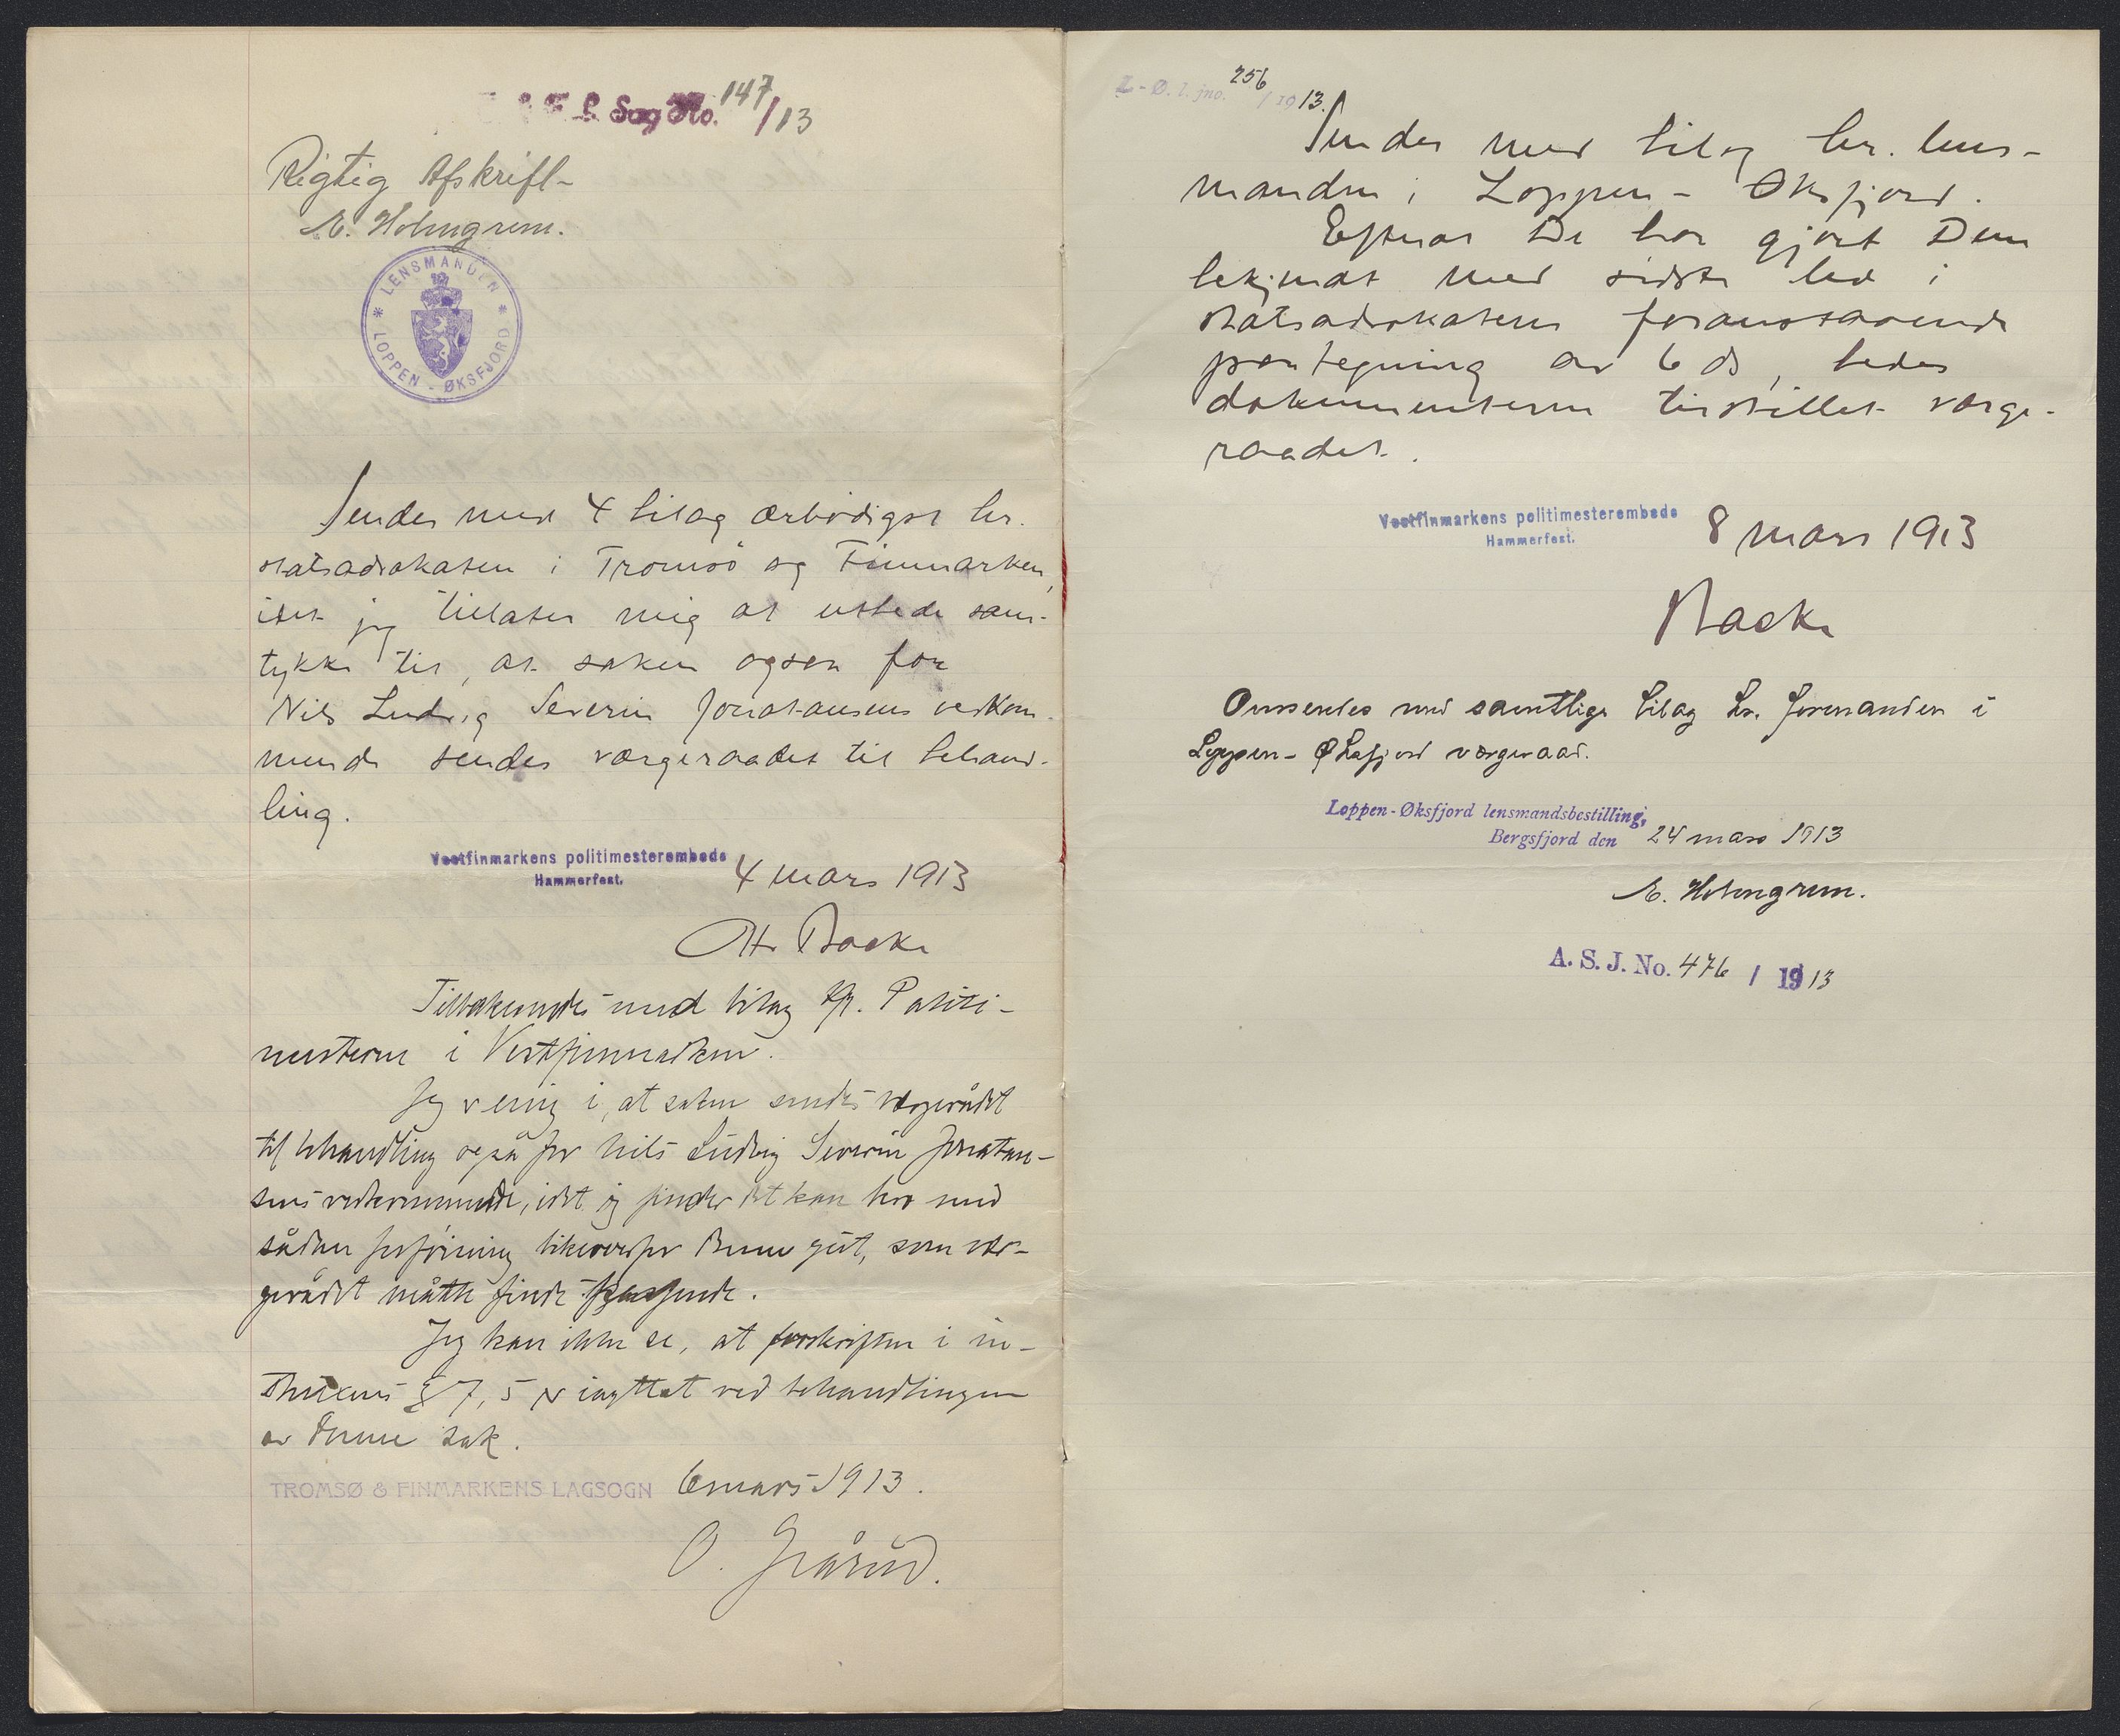 S. Sag No. 147/13
Rigtig Afskrift
E. Holmgrem.
LENSMANDEN * LOPPEN - ØKSFJORD *
Sendes med 4 bilag ærbødigst hr.
statsadvokaten i Tromsø og Finmarken,
idet jeg tillater mig at utbede sam-
tykke til, at saken ogsaa for
Nils Ludvig Severin Jonatansens vedkom-
mende sendes værgeraadet til behand-
ling.
Vestfinmarkens politimesterembede
Hammerfest.
4 mars 1913
Otto Backe
Tilbakesendes med bilag Hr. Politi-
mesteren i Vestfinmarken.
Jeg er enig i, at saken sendes værgerådet
til behandling også for Nils Ludvig Severin Jonatan-
sens vedkommende, idet jeg finder det kan bero med
sådan forføining likeoverfor denne gut, som vær-
gerådet måtte finde passende.
Jeg kan ikke se, at forskriften i in-
struxens § 7, 5 er iagttat ved behandlingen
av denne sak.
TROMSØ & FINMARKENS LAGSOGN 6 mars 1913.
O. Grårud.
L-Ø. l. jno. 256 / 1913.
Sendes med bilag hr. lens-
manden i Loppen - Øksfjord.
Efterat De har gjort Dem
bekjendt med sidste led i
statsadvokatens foranstaaende
paategning av 6 ds, bedes
dokumenterne tilstillet værge-
raadet.
Vestfinmarkens politimesterembede
Hammerfest.
8 mars 1913
Backe
Omsendes med samtlige bilag hr. formanden i
Loppen - Øksfjord værgeraad.
Loppen-Øksfjord lensmandsbestilling,
Bergsfjord den 24 mars 1913
E. Holmgrem.
A. S. J. No. 476 / 1913